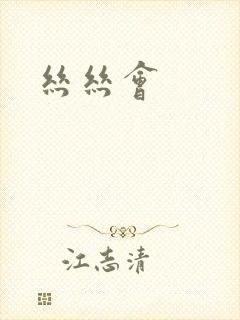 絲絲會
江志清